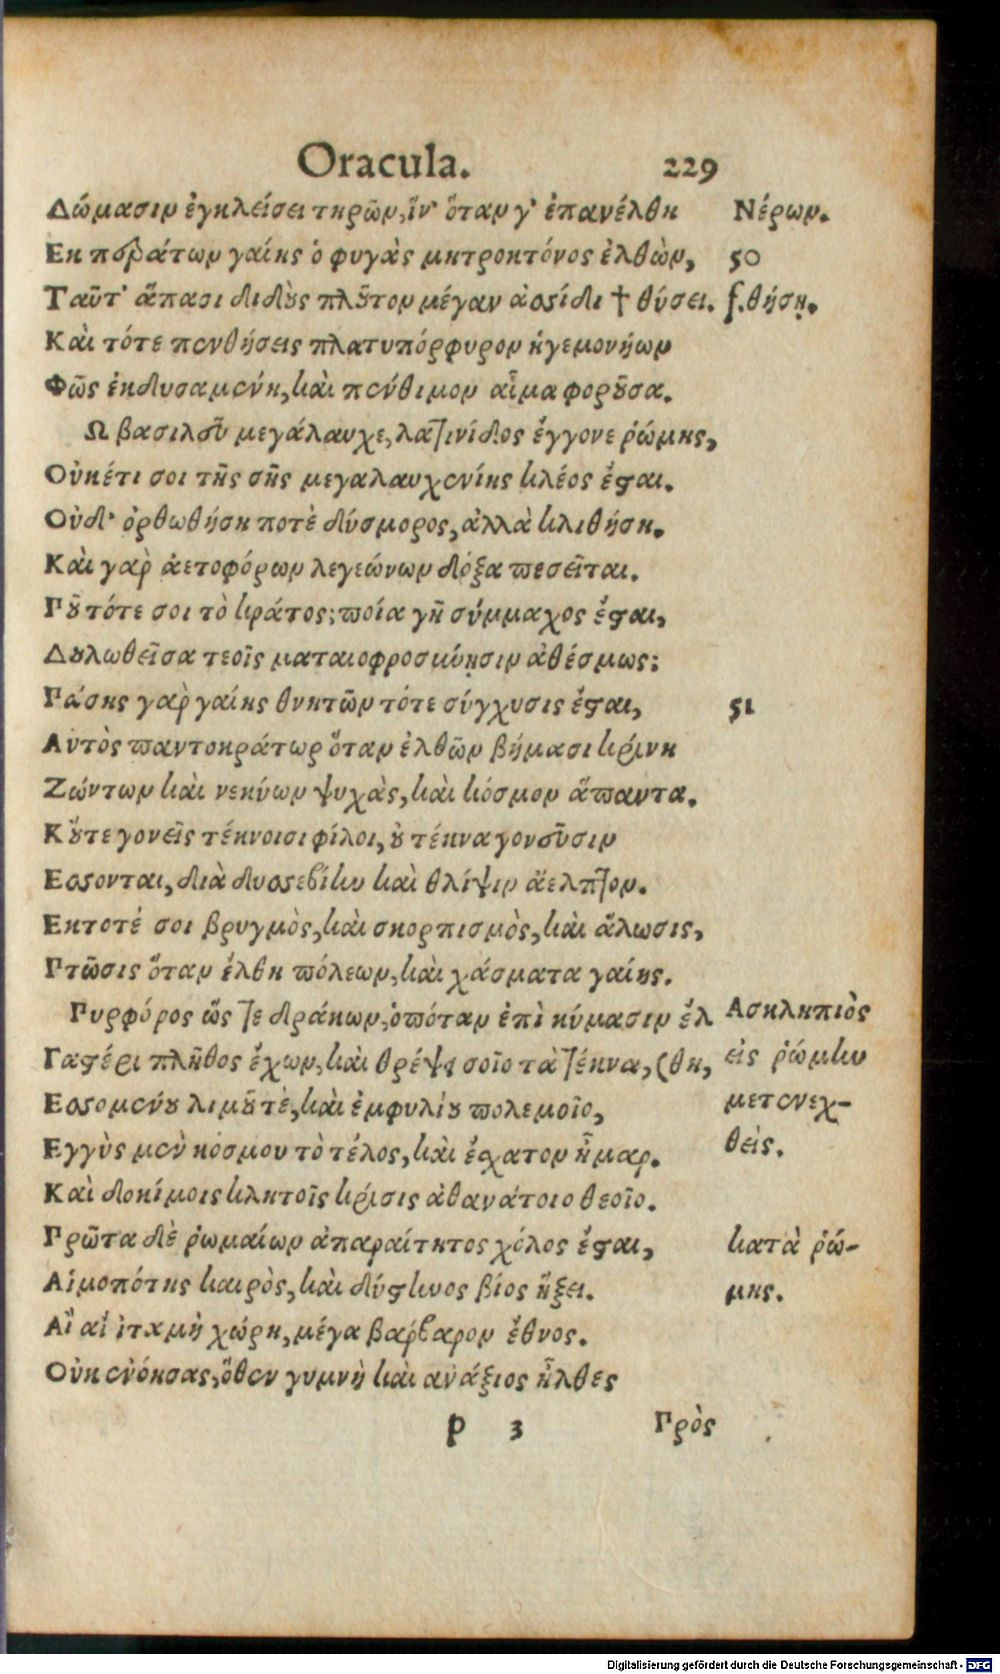 Oracula. 229
Δώμασιν ἐγκλείσει τηρῶν, ἵν' ὅταν γ' ἐπανέλθη Νέρων.
Εκ περάτων γαίης ὁ φυγὰς μητροκτόνος ἐλθὼν, 50
Ταῦτ' ἅπασι διδοὺς πλοῦτον μέγαν ἀσίδι † θύσει. f. θήσῃ.
Καὶ τότε πενθήσεις πλατυπόρφυρον ἡγεμονήων
Φῶς ἐκδυσαμένη, καὶ πένθιμον αἷμα φοροῦσα.
Ω βασιλεῦ μεγάλαυχε, λατινίδος ἔγγονε ῥώμης,
Οὐκέτι σοι τῆς σῆς μεγαλαυχενίης κλέος ἔσται.
Οὐδ' ὀρθωθήση ποτὲ δύσμορος, ἀλλὰ κλιθήση.
Καὶ γὰρ ἀετοφόρων λεγεώνων δόξα πεσεῖται.
Ποῦ τότε σοι τὸ κράτος; ποία γῆ σύμμαχος ἔσται,
Δουλωθεῖσα τεοῖς ματαιοφροσύνῃσιν ἀθέσμως;
Πάσης γὰρ γαίης θνητῶν τότε σύγχυσις ἔσται, 51
Αυτὸς παντοκράτωρ ὅταν ἐλθῶν βήμασι κρίνη
Ζώντων καὶ νεκύων ψυχὰς, καὶ κόσμον ἅπαντα.
Κοὔτε γονεῖς τέκνοισι φίλοι, οὐ τέκνα γονεῦσιν
Εσσονται, διὰ δυσσεβίην καὶ θλίψιν ἄελπτον.
Εκτοτέ σοι βρυγμὸς, καὶ σκορπισμὸς, καὶ ἅλωσις,
Πτῶσις ὅταν ἔλθη πόλεων, καὶ χάσματα γαίης.
Πυρφόρος ὥς τε δράκων, ὁπόταν ἐπὶ κύμασιν ἔλ Ασκληπιὸς
Γαστέρι πλῆθος ἔχων, καὶ θρέψει σοῖο τὰ τέκνα, (θη, εἰς ῥώμην
Εσσομένου λιμοῦ τὲ, καὶ ἐμφυλίου πολεμοῖο, μετενεχ-
Εγγὺς μὲν κόσμου τὸ τέλος, καὶ ἔσχατον ἦμαρ. θεὶς.
Καὶ δοκίμοις κλητοῖς κρίσις ἀθανάτοιο θεοῖο.
Πρῶτα δὲ ῥωμαίων ἀπαραίτητος χόλος ἔσται, κατὰ ῥώ-
Αἱμοπότης καιρὸς, καὶ δύστηνος βίος ἥξει. μης.
Αἲ αἲ ἰταλὴ χώρη, μέγα βαρβαρον ἔθνος.
Οὐκ ἐνόησας, ὅθεν γυμνὴ καὶ ανάξιος ἦλθες
p 3 Πρὸς
Digitalisierung gefördert durch die Deutsche Forschungsgemeinschaft - DFG